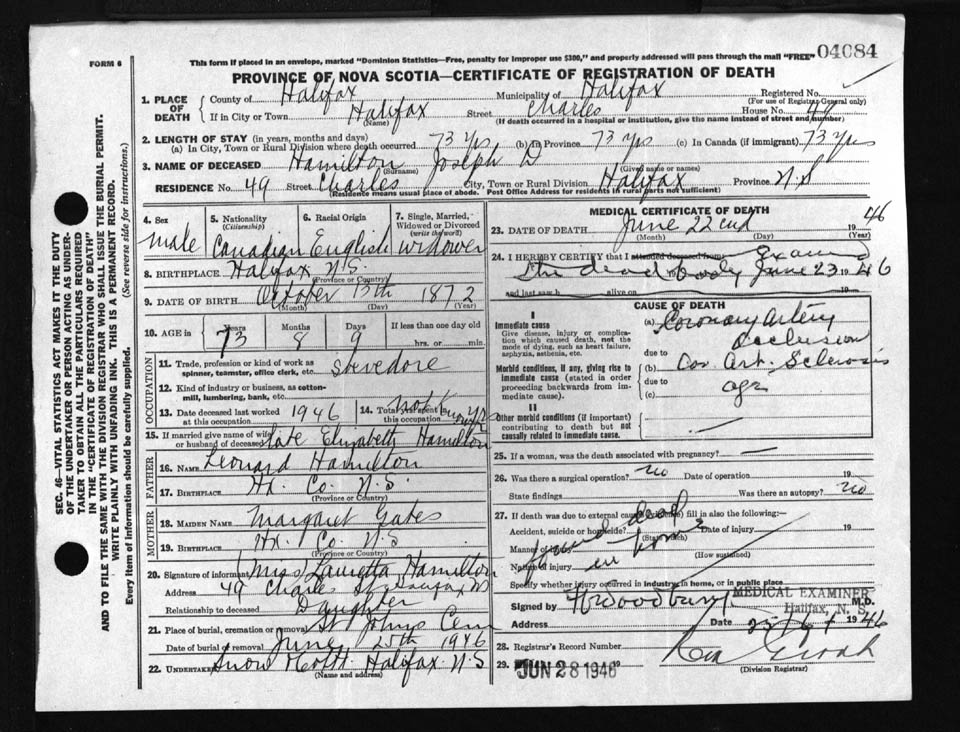 04084
FORM 6
This form if placed in an envelope, marked "Dominion Statistics—Free, penalty for improper use $300," and properly addressed will pass through the mail "FREE"
PROVINCE OF NOVA SCOTIA—CERTIFICATE OF REGISTRATION OF DEATH
1. PLACE OF DEATH County of Halifax Municipality of Halifax Registered No.
(For use of Registrar General only)
If in City or Town Halifax Street Charles House No. 49
(Name) (If death occurred in a hospital or institution, give the name instead of street and number)
2. LENGTH OF STAY (in years, months and days)
(a) In City, Town or Rural Division where death occurred 73 yrs (b) In Province 73 yrs (c) In Canada (if immigrant) 73 yrs
3. NAME OF DECEASED Hamilton Joseph D
(Surname) (Given name or names)
RESIDENCE No. 49 Street Charles City, Town or Rural Division Halifax Province N.S
(Residence means usual place of abode. Post Office Address for residents in rural parts not sufficient)
4. Sex male
5. Nationality (Citizenship) Canadian
6. Racial Origin English
7. Single, Married, Widowed or Divorced (write the word) widower
8. BIRTHPLACE Halifax N.S.
9. DATE OF BIRTH October 13th 1872
(Month) (Day) (Year)
10. AGE in Years 73 Months 8 Days 9 If less than one day hrs. or min.
OCCUPATION
11. Trade, profession or kind of work as spinner, teamster, office clerk, etc. Stevedore
12. Kind of industry or business, as cotton-mill, lumbering, bank, etc.
13. Date deceased last worked at this occupation 1946
14. Total yrs. spent in this occupation not known yrs
15. If married give name of wife or husband of deceased late Elizabeth Hamilton
FATHER
16. Name Leonard Hamilton
17. Birthplace Hx. Co. N.S.
(Province or Country)
MOTHER
18. MAIDEN NAME Margaret Gates
19. BIRTHPLACE Hx. Co. N.S
(Province or Country)
20. Signature of informant Miss Lauretta Hamilton
Address 49 Charles St Halifax NS
Relationship to deceased Daughter
21. Place of burial, cremation or removal St Johns Cem
Date of burial or removal June 25th 1946
22. UNDERTAKER Snow Halifax N.S
(Name and address)
MEDICAL CERTIFICATE OF DEATH
23. DATE OF DEATH June 22nd 1946
(Month) (Day) (Year)
24. I HEREBY CERTIFY that I attended deceased from Examined
the dead body June 23 1946
and last saw h alive on 19
CAUSE OF DEATH
I
Immediate cause (a) Coronary Artery Occlusion
Give disease, injury or complication which caused death, not the mode of dying, such as heart failure, asphyxia, asthenia, etc.
due to
Morbid conditions, if any, giving rise to immediate cause (stated in order proceeding backwards from immediate cause). (b) Cor. Art. Sclerosis
due to
(c) age
II
Other morbid conditions (if important) contributing to death but not causally related to immediate cause. —
25. If a woman, was the death associated with pregnancy? —
26. Was there a surgical operation? no Date of operation 19
State findings Was there an autopsy? no
27. If death was due to external causes (violence) fill in also the following:—
Accident, suicide or homicide? Date of injury 19
(State which)
Manner of injury
(How sustained)
Nature of injury
found dead in home
Specify whether injury occurred in industry, in home, or in public place
Signed by M.D.
MEDICAL EXAMINER
Halifax, N. S.
Address Date 1946
28. Registrar's Record Number
29. JUN 28 1946 19
(Division Registrar)
SEC. 46—VITAL STATISTICS ACT MAKES IT THE DUTY
OF THE UNDERTAKER OR PERSON ACTING AS UNDER-
TAKER TO OBTAIN ALL THE PARTICULARS REQUIRED
IN THE "CERTIFICATE OF REGISTRATION OF DEATH"
AND TO FILE THE SAME WITH THE DIVISION REGISTRAR WHO SHALL ISSUE THE BURIAL PERMIT.
WRITE PLAINLY WITH UNFADING INK. THIS IS A PERMANENT RECORD.
Every item of Information should be carefully supplied. (See reverse side for instructions.)